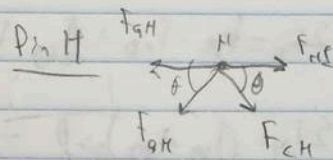 Pin H
F_GH
H
F_HI
θ
θ
F_BH
F_CH